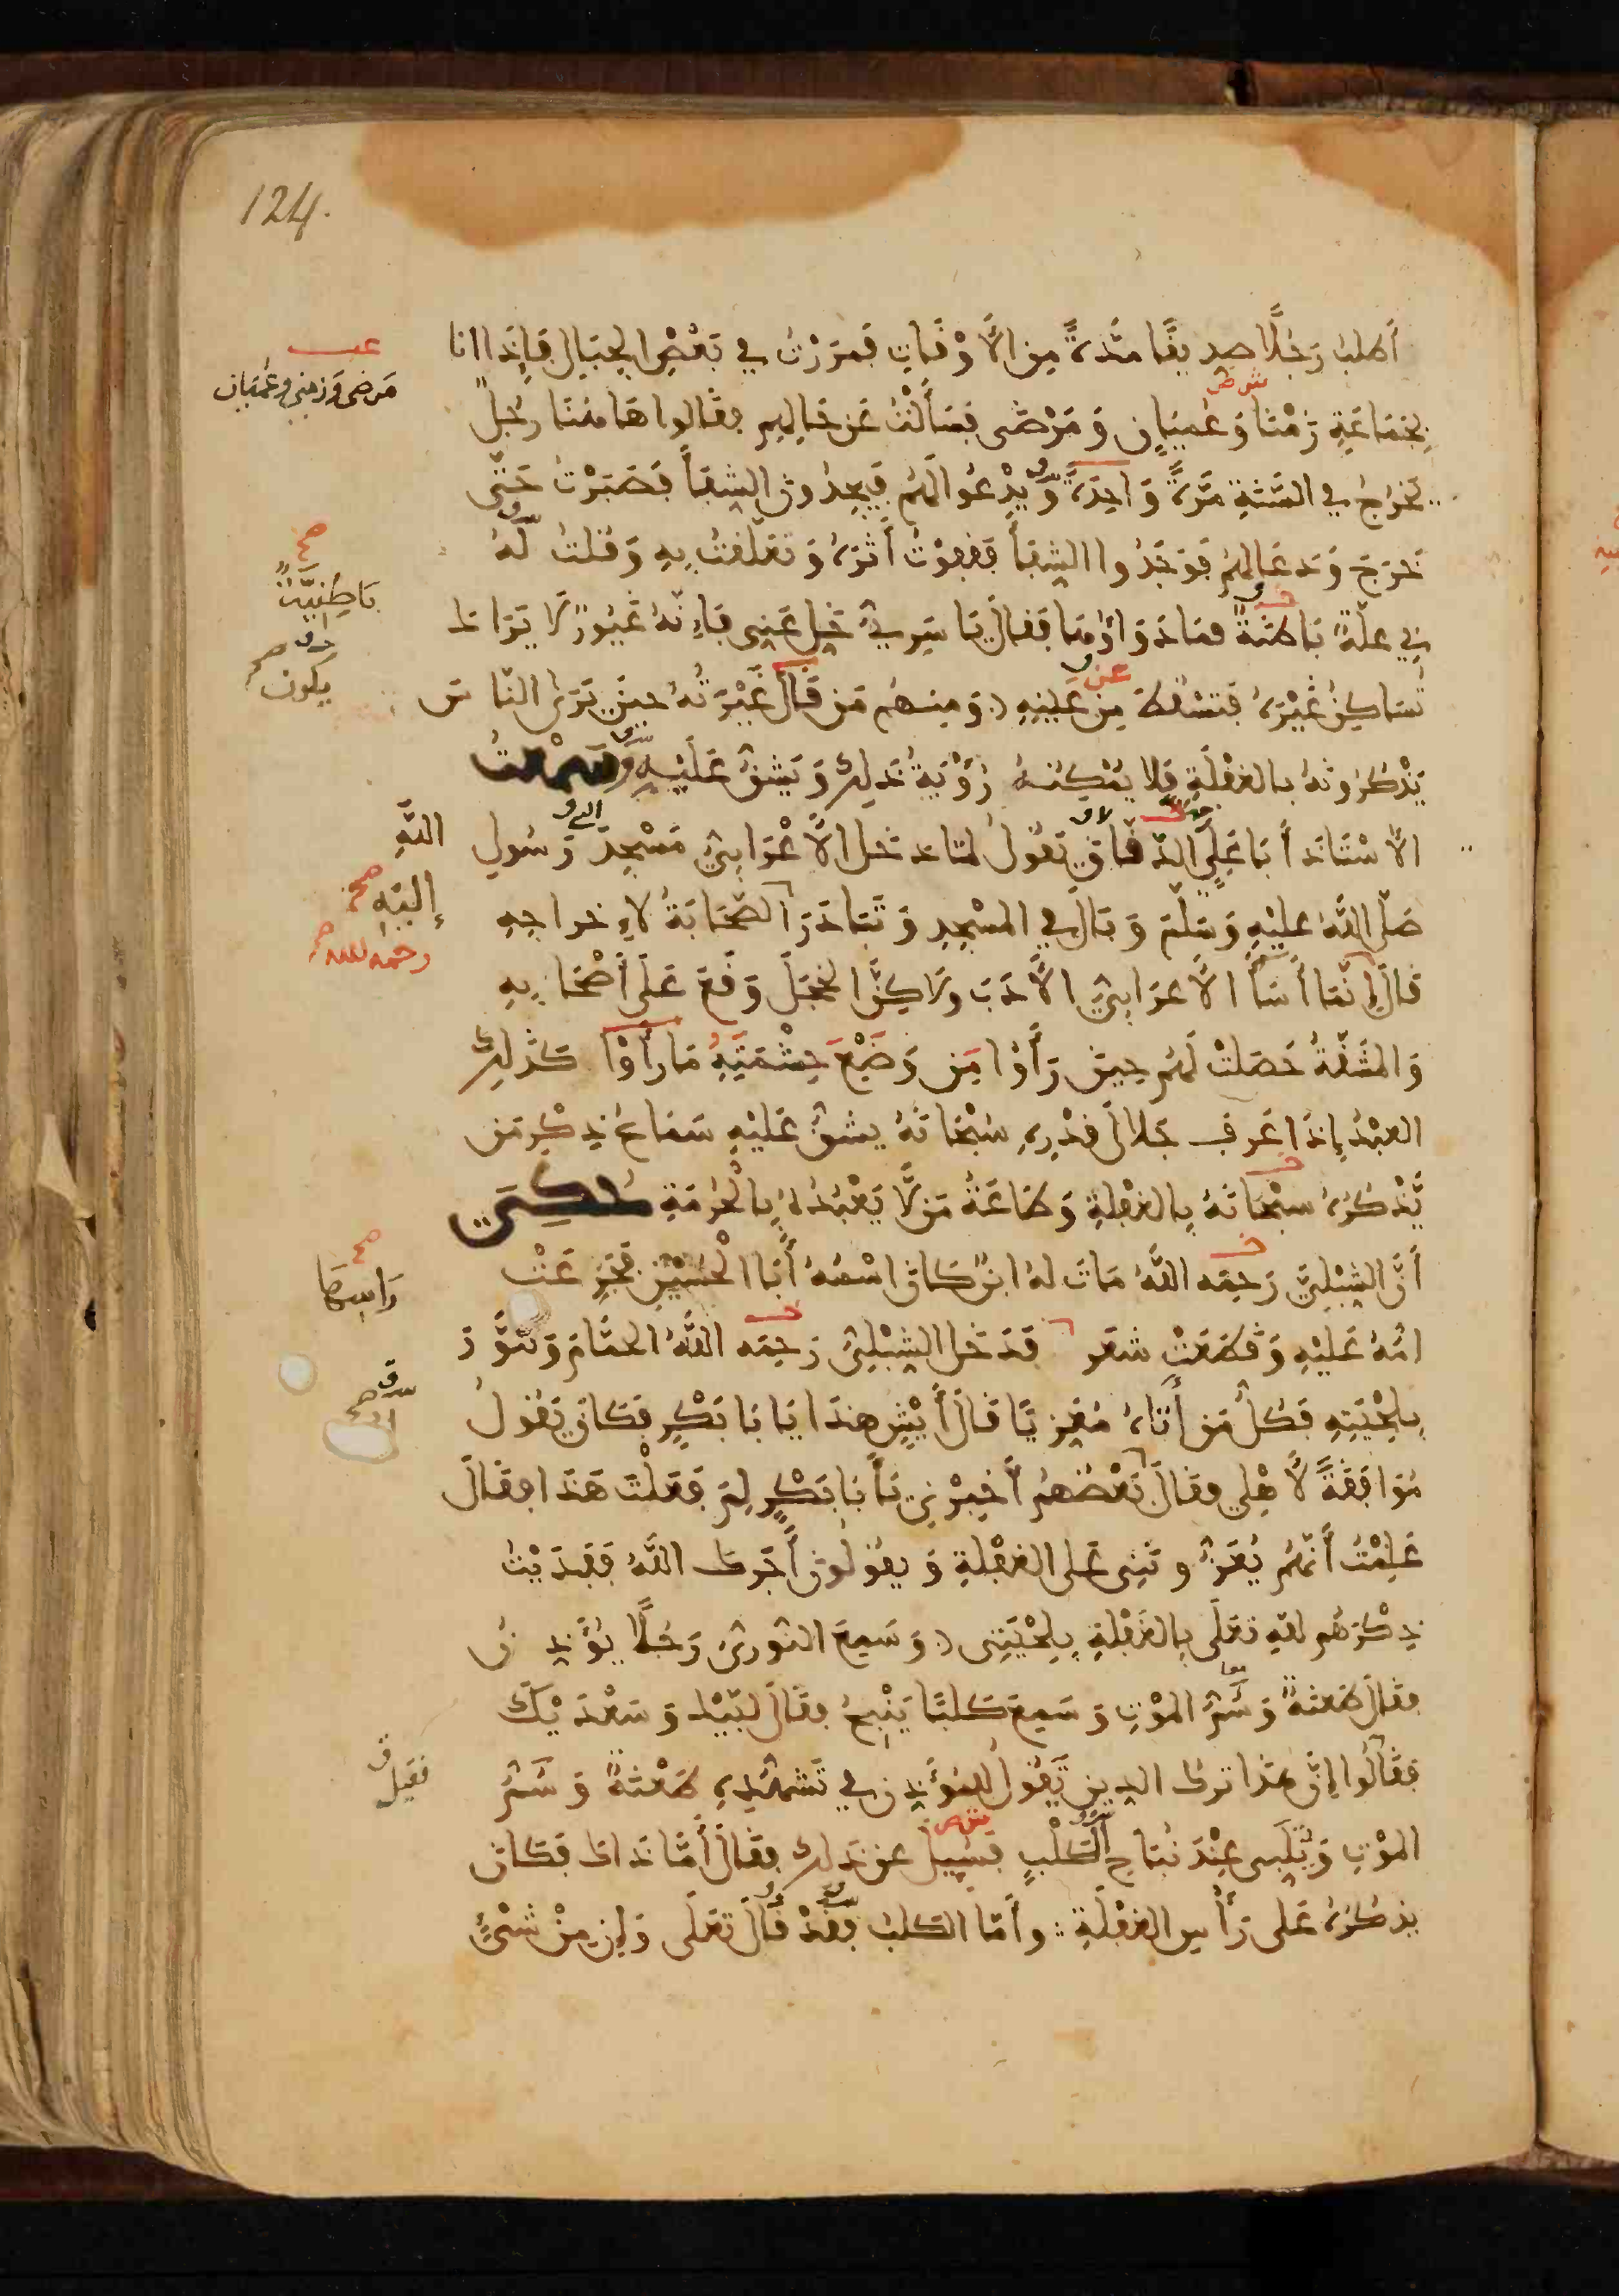 124.
أطلبُ رَجُلًا صِدِيقًا مُدَّةً مِنَ الأَوْقَاتِ فمَرَرْتُ في بَعْضِ الجِبَالِ فَإِذَا انا
بِجَمَاعَةٍ زَمْنَا وَعُمْيَانٍ وَمَرْضَى فسَألْتُ عَن حَالِهِم فقَالوا هَاهُنَا رَجُلٌ
يَخْرُجُ في السَّنَةِ مَرَّةً وَاحِدَةً وَيَدْعُوا لَهُم فَيَجِدُونَ الشِفَاءَ فَصَبَرْتُ حَتَّى
خَرَجَ وَدَعَا لَهُم فَوَجَدُوا الشِفَاءَ فَقَفَوْتُ أَثَرَهُ وَتَعَلَّقْتُ بِهِ وَقُلْتُ لَهُ
بِي عِلَّةٌ بَاطِنَةٌ فمَا دَوَاؤُهَا فَقَالَ يَا سَرِيُّ خَلِّ عَنِّي فَإِنَّهُ غَيُورٌ لَا يَرَاكَ
تُسَاكِنُ غَيْرَهُ فَتَسْقُطَ مِن عَيْنِهِ وَمِنهُم مَن قَالَ غَيْرَتُهُ حِينَ يَرَى النَّاسَ
يَذْكُرُونَهُ بالغَفْلَةِ فَلا يُمْكِنُهُ رُؤْيَةُ ذَلِكَ وَيَشُقُّ عَلَيْهِ وَسَمِعْتُ
الأُسْتَاذَ أَبَا عَلِيٍّ الدَّقَّاقَ يَقُولُ لمَّا دَخَلَ الأَعْرَابِيُّ مَسْجِدَ رَسُولِ اللَّهِ
صَلَّى اللَّهُ عَلَيْهِ وَسَلَّمَ وَبَالَ في المَسْجِدِ وَتَبَادَرَ الصَّحَابَةُ لإِخْرَاجِهِ
قَالَ إِنَّمَا أَسَاءَ الأَعْرَابِيُّ الأَدَبَ وَلَاكِنَّ الخَجَلَ وَقَعَ عَلَى أَصْحَابِهِ
وَالمَشَقَّةُ حَصَلَتْ لَهُم حِينَ رَأَوْا مِن وَضْعِ حِشْمَتِهِ مَا رَأَوْا كَذَلِكَ
العَبْدُ إِذَا عَرَفَ جَلَالَ قَدْرِهِ سُبْحَانَهُ يَشُقُّ عَلَيْهِ سَمَاعُ ذِكْرِ مَن
يَّذْكُرُهُ سُبْحَانَهُ بِالغَفْلَةِ وَطَاعَةُ مَن لَّا يَعْبُدُهُ بِالْحُرْمَةِ حُكِيَ
أَنَّ الشِبْلِيَّ رَحِمَه اللَّهُ مَاتَ لَهُ ابْنٌ كَانَ اسْمُهُ أَبَا الْحُسَيْنِ فَجَزِعَتْ
امُّهُ عَلَيْهِ وَقَطَعَتْ شَعَرَ فَدَخَلَ الشِبْلِيُّ رَحِمَه اللَّهُ الحَمَّامَ وَتَنَوَّرَ
بِلِحْيَتِهِ فَكُلُّ مَن أَتَاهُ مُعَزِّيًا قَالَ أَيْشٍ هَذَا يَا بَا بَكْرٍ فَكَانَ يَقُولُ
مُوَافَقَةً لأَهْلِي فقَالَ بَعْضُهُم أَخْبِرْنِي يَا أَبَا بَكْرٍ لِمَ فَعَلْتَ هَذَا فَقَالَ
عَلِمْتُ أَنَّهُم يُعَزُّونَنِي عَلَى الغَفْلَةِ وَيَقُولُونَ أَجَرَكَ اللَّهُ فَفَدَيْتُ
ذِكْرَهُم للهِ تَعَلَى بِالغَفْلَةِ بِلِحْيَتِي وَسَمِعَ النُّورِيُّ رَجُلًا يُؤَذِّنُ
فقَالَ طَعْنَةً وَسُمَّ المَوْتِ وَسَمِعَ كَلْبًا يَنْبِحُ فقَالَ لَبَّيْكَ وَسَعْدَيْكَ
فَقَالُوا إِنَّ هَذَا تركَ الدِينِ يَقُولُ لِلمُؤَذِّنِ في تَشَهُّدِهِ طَعْنَةً وَسُمَّ
المَوْتِ وَيُلَبِّي عِنْدَ نُبَاحِ الكَلْبِ فَسُئِلَ عَن ذَلِكَ فقَالَ أَمَّا ذَاكَ فَكَانَ
يَذْكُرُهُ عَلَى رَأْسِ الغَفْلَةِ وأَمَّا الكَلْبُ فَقَدْ قَالَ تَعَلَى وَإِن مِنْ شَيْءٍ
مَرضى وَزمنى وَعُميان
صح
بَاطِنِيَّةٌ
يكون
إليهِ صح
رحمه الله صح
صح
فقيل